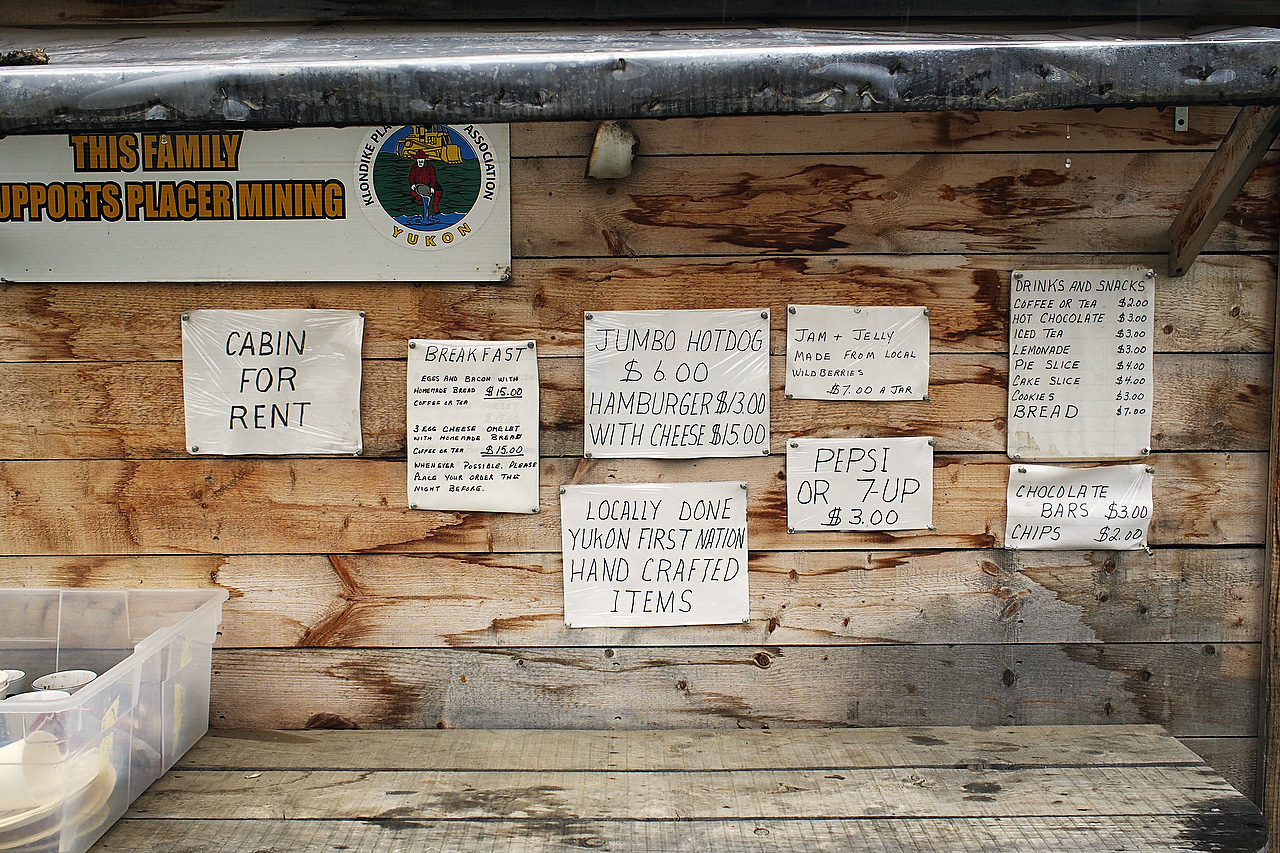 THIS FAMILY
UPPORTS PLACER MINING
KLONDIKE PLA ASSOCIATION
YUKON
CABIN
FOR
RENT
BREAKFAST
EGGS AND BACON WITH
HOMEMADE BREAD $15.00
COFFEE OR TEA
3 EGG CHEESE OMELET
WITH HOMEMADE BREAD
COFFEE OR TEA $15.00
WHENEVER POSSIBLE, PLEASE
PLACE YOUR ORDER THE
NIGHT BEFORE.
JUMBO HOTDOG
$6.00
HAMBURGER $13.00
WITH CHEESE $15.00
LOCALLY DONE
YUKON FIRST NATION
HAND CRAFTED
ITEMS
JAM + JELLY
MADE FROM LOCAL
WILD BERRIES
$7.00 A JAR
PEPSI
OR 7-UP
$3.00
DRINKS AND SNACKS
COFFEE OR TEA $2.00
HOT CHOCOLATE $3.00
ICED TEA $3.00
LEMONADE $3.00
PIE SLICE $4.00
CAKE SLICE $4.00
COOKIES $3.00
BREAD $7.00
CHOCOLATE
BARS $3.00
CHIPS $2.00